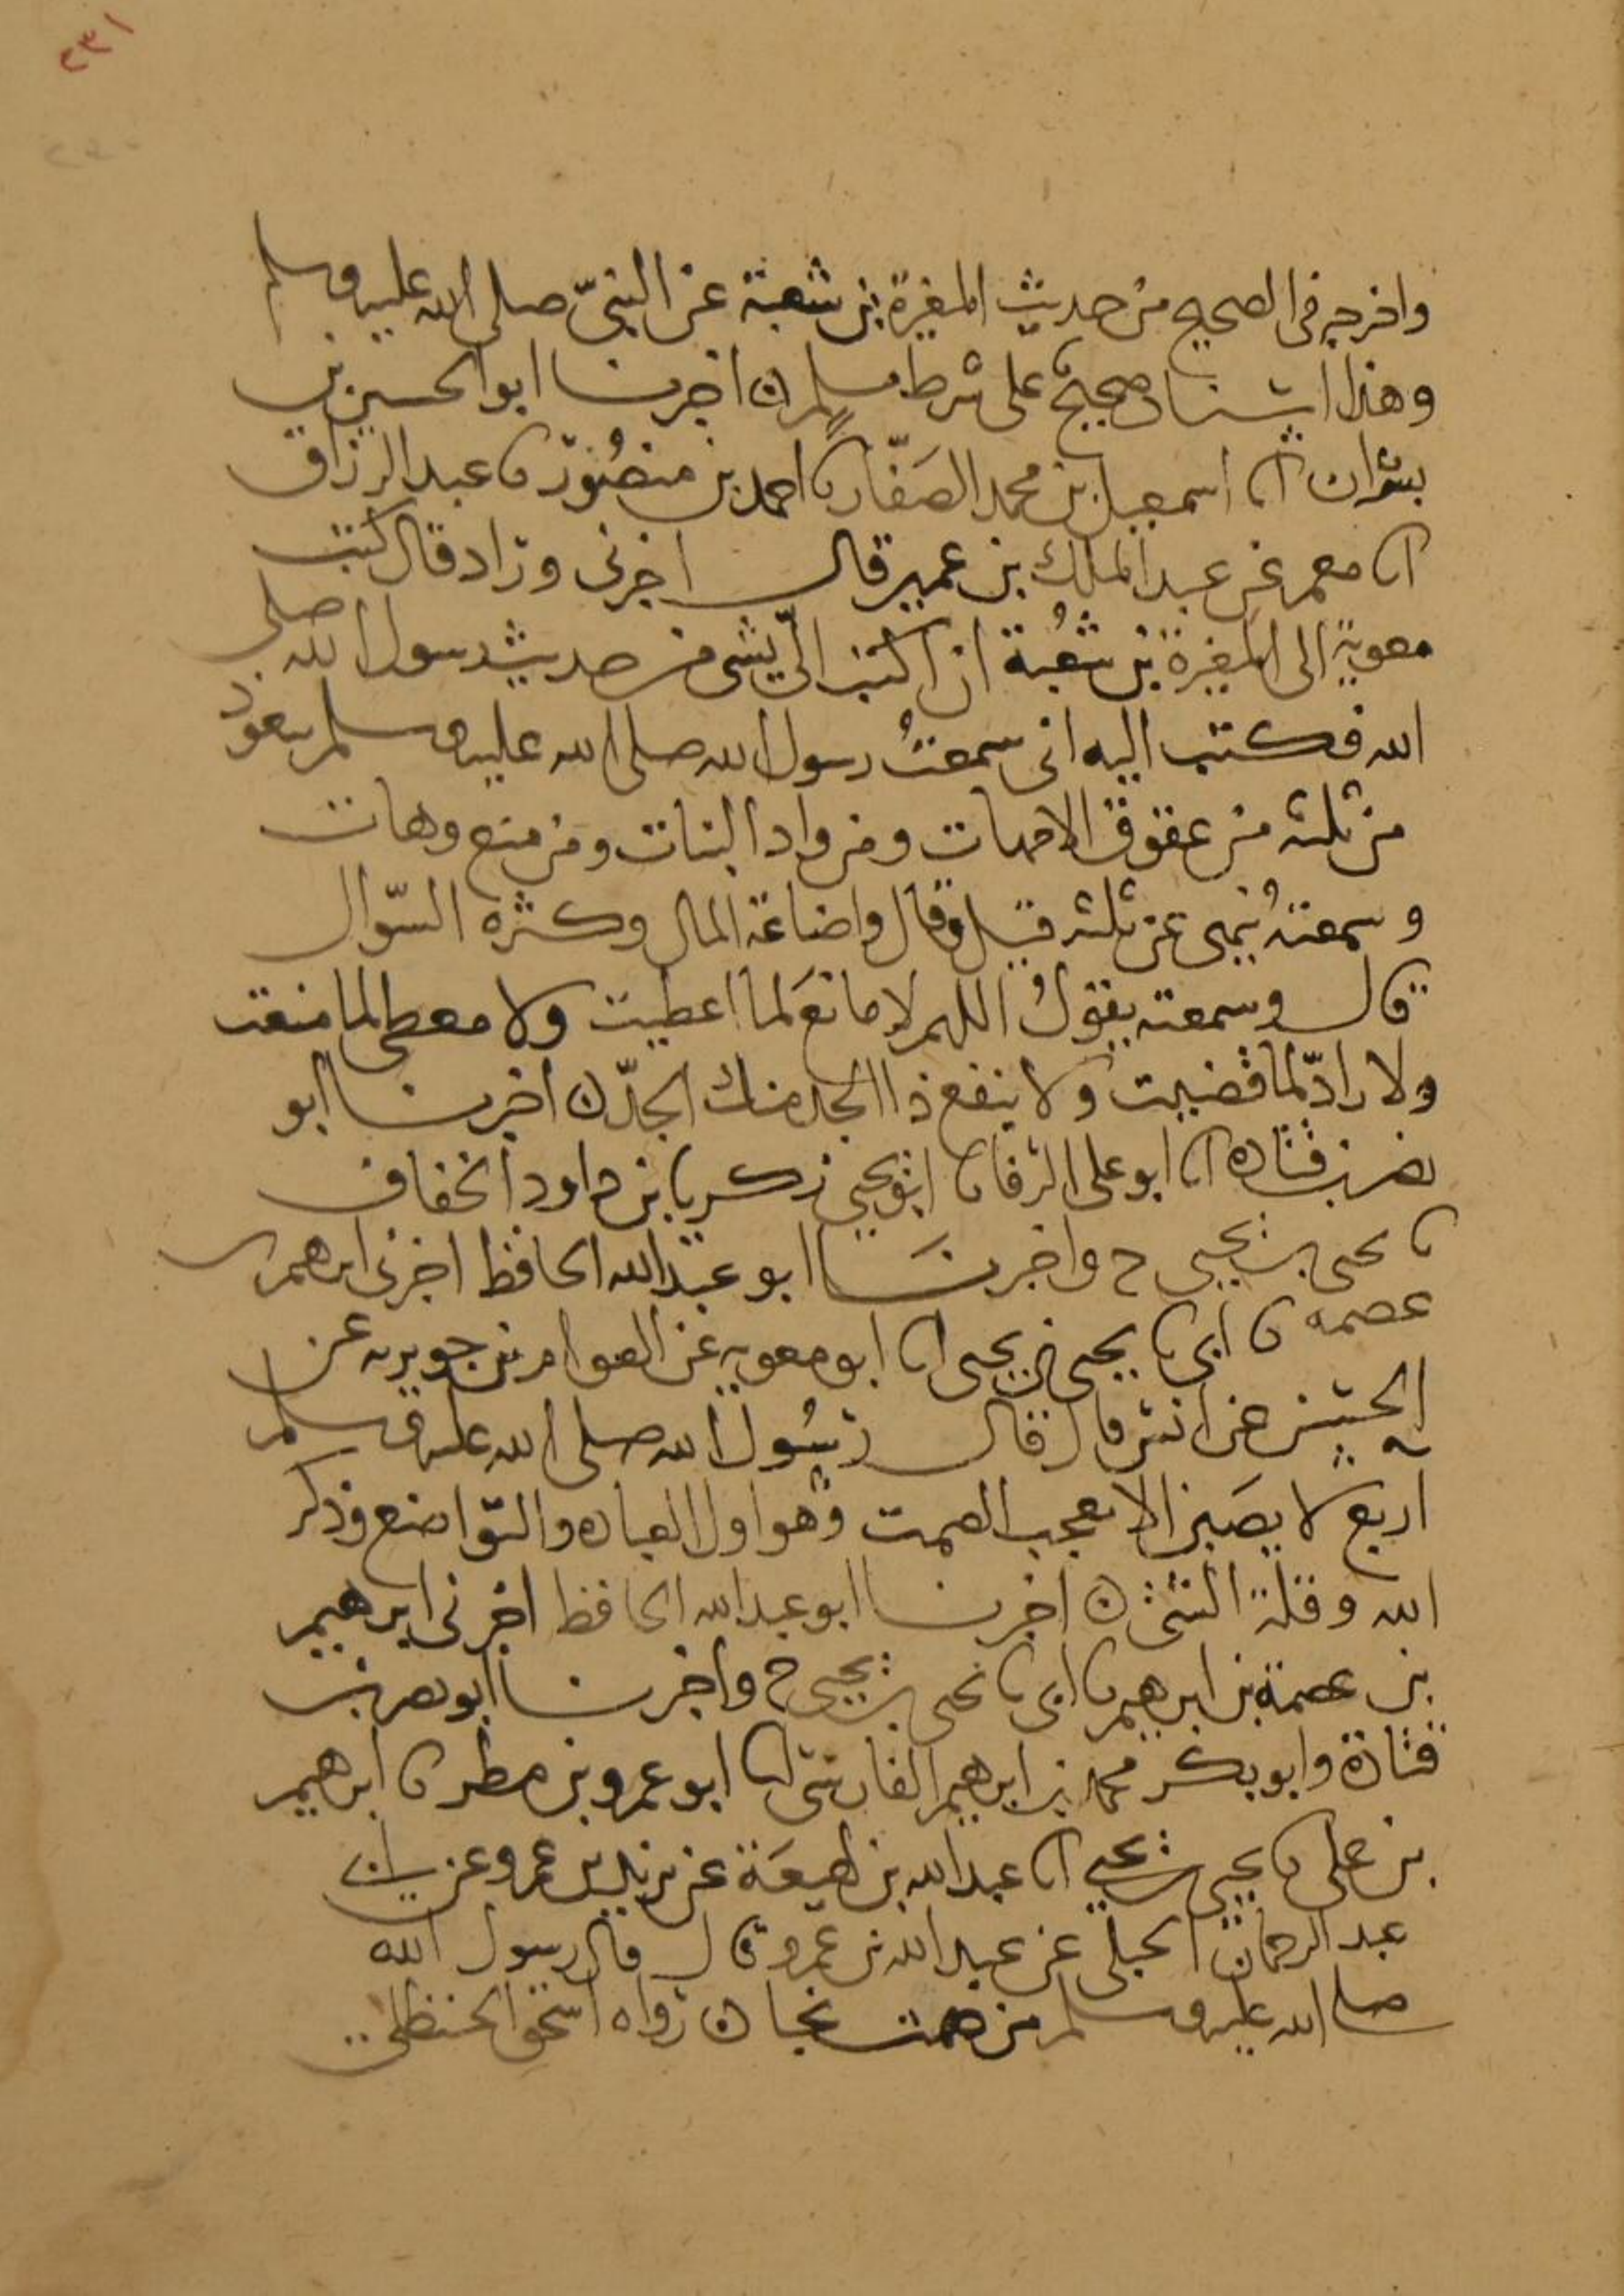 ٢٣١
واخرجه في الصحيح من حديث المغيرة بن شعبة عن النبيّ صلى الله عليه وسلم
وهذا اسناد صحيح على شرط مسلم ه اخبرنا ابو الحسين بن
بشران انا اسمعيل بن محمد الصَفّار نا احمد بن منصُور نا عبد الرزاق
انا معمر عن عبد الملك بن عمير قال اخبرني وزاد قال كتب
معوية الى المغيرة بن شُعبة ان اكتب اليّ بشي من حديث رسول الله صلى
الله فكتب اليه اني سمعتُ رسول الله صلى الله عليه وسلم يتعوذ
من ثلثه من عقوق الامهات ومن واد البنات ومن منع وهات
وسمعتهُ ينهى عن ثلثه قيل وقال واضاعة المال وكثرة السّوال
قال وسمعته يقولُ اللهم لا مانعَ لما اعطيت ولا معطي لما منعت
ولا رادّ لما قضيت ولا ينفع ذا الجد منك الجدّ ه اخبرنا ابو
نصر بن قتاده انا ابو على الرفا نا ابو يحيى زكريا بن داود الخفاف
نا يحيى بن يحيى ح واخبرنَا ابو عبد الله الحافظ اخبرني ابرهيم بن
عصمه نا ابي نا يحيى بن يحيى انا ابو معوية عن العوام بن جويريه عن
الحسن عن انس قال قال رسُول الله صلى الله عليه وسلم
اربع لا يصَبن الا بعجب الصمت وهو اول العباده والتّواضع وذكر
الله وقلة الشئ ه اخبرنا ابو عبد الله الحافظ اخبرني ابرهيم
بن عصمة بن ابرهيم نا ابي نا يحيى بن يحيى ح واخبرنا ابو نصر بن
قتادة وابو بكر محمد بن ابرهيم الفارسي انا ابو عمرو بن مطر نا ابرهيم
بن على نا يحيى بن يحيى انا عبد الله بن لهيعَة عن يزيد بن عمرو عن ابي
عبد الرحمان الحبلي عن عبد الله بن عمرو قال قال رسول الله
صلى الله عليه وسلم من صمت نجا ه رواه اسحق الحنظلي